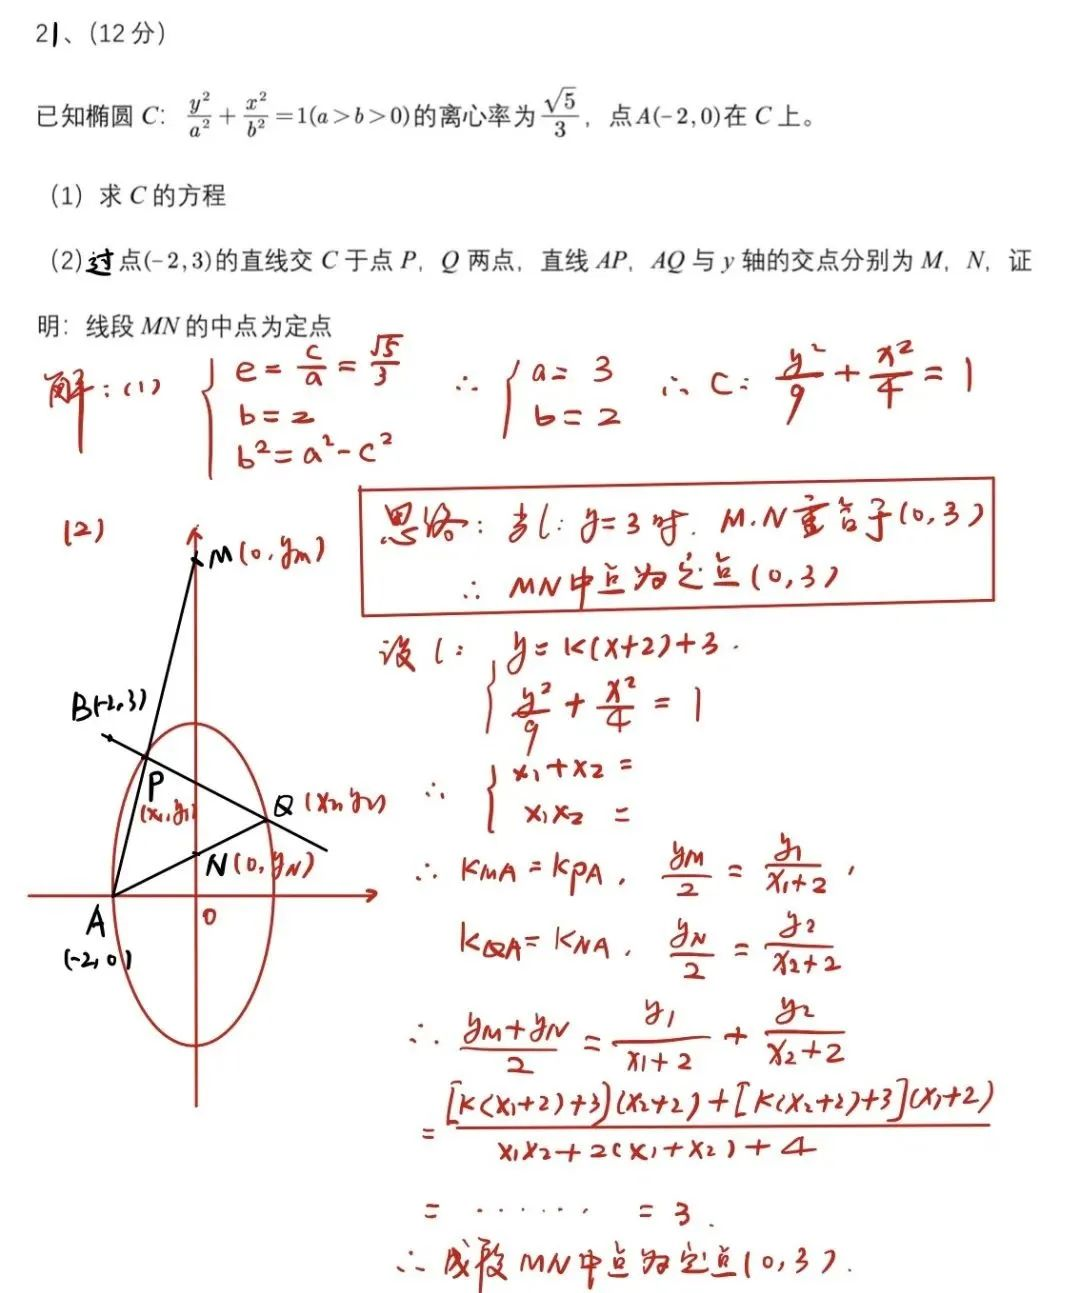 21、(12 分)
已知椭圆 C: y²/a² + x²/b² =1(a>b>0)的离心率为 √5/3, 点A(-2,0)在 C 上。
(1) 求 C 的方程
(2)过点(-2,3)的直线交 C 于点 P, Q 两点, 直线 AP, AQ 与 y 轴的交点分别为 M, N, 证
明: 线段 MN 的中点为定点
解:(1) { e = c/a = √5/3
b = 2
b² = a² - c²
∴ { a = 3
b = 2
∴ C: y²/9 + x²/4 = 1
(2)
思路: 当l: y=3 时. M.N 重合于(0,3)
∴ MN中点为定点(0,3)
M(0,yM)
B(-2,3)
P
(x1,y1)
Q(x2,y2)
N(0,yN)
A
(-2,0)
O
设 l: y=K(x+2)+3.
{ y²/9 + x²/4 = 1
∴ { x1+x2 =
x1x2 =
∴ KMA = KPA , yM/2 = y1/(x1+2) ,
KQA = KNA , yN/2 = y2/(x2+2)
∴ (yM+yN)/2 = y1/(x1+2) + y2/(x2+2)
= ([K(x1+2)+3](x2+2)+[K(x2+2)+3](x1+2))/(x1x2+2(x1+x2)+4)
= ...... = 3 .
∴ 线段 MN中点为定点(0,3).